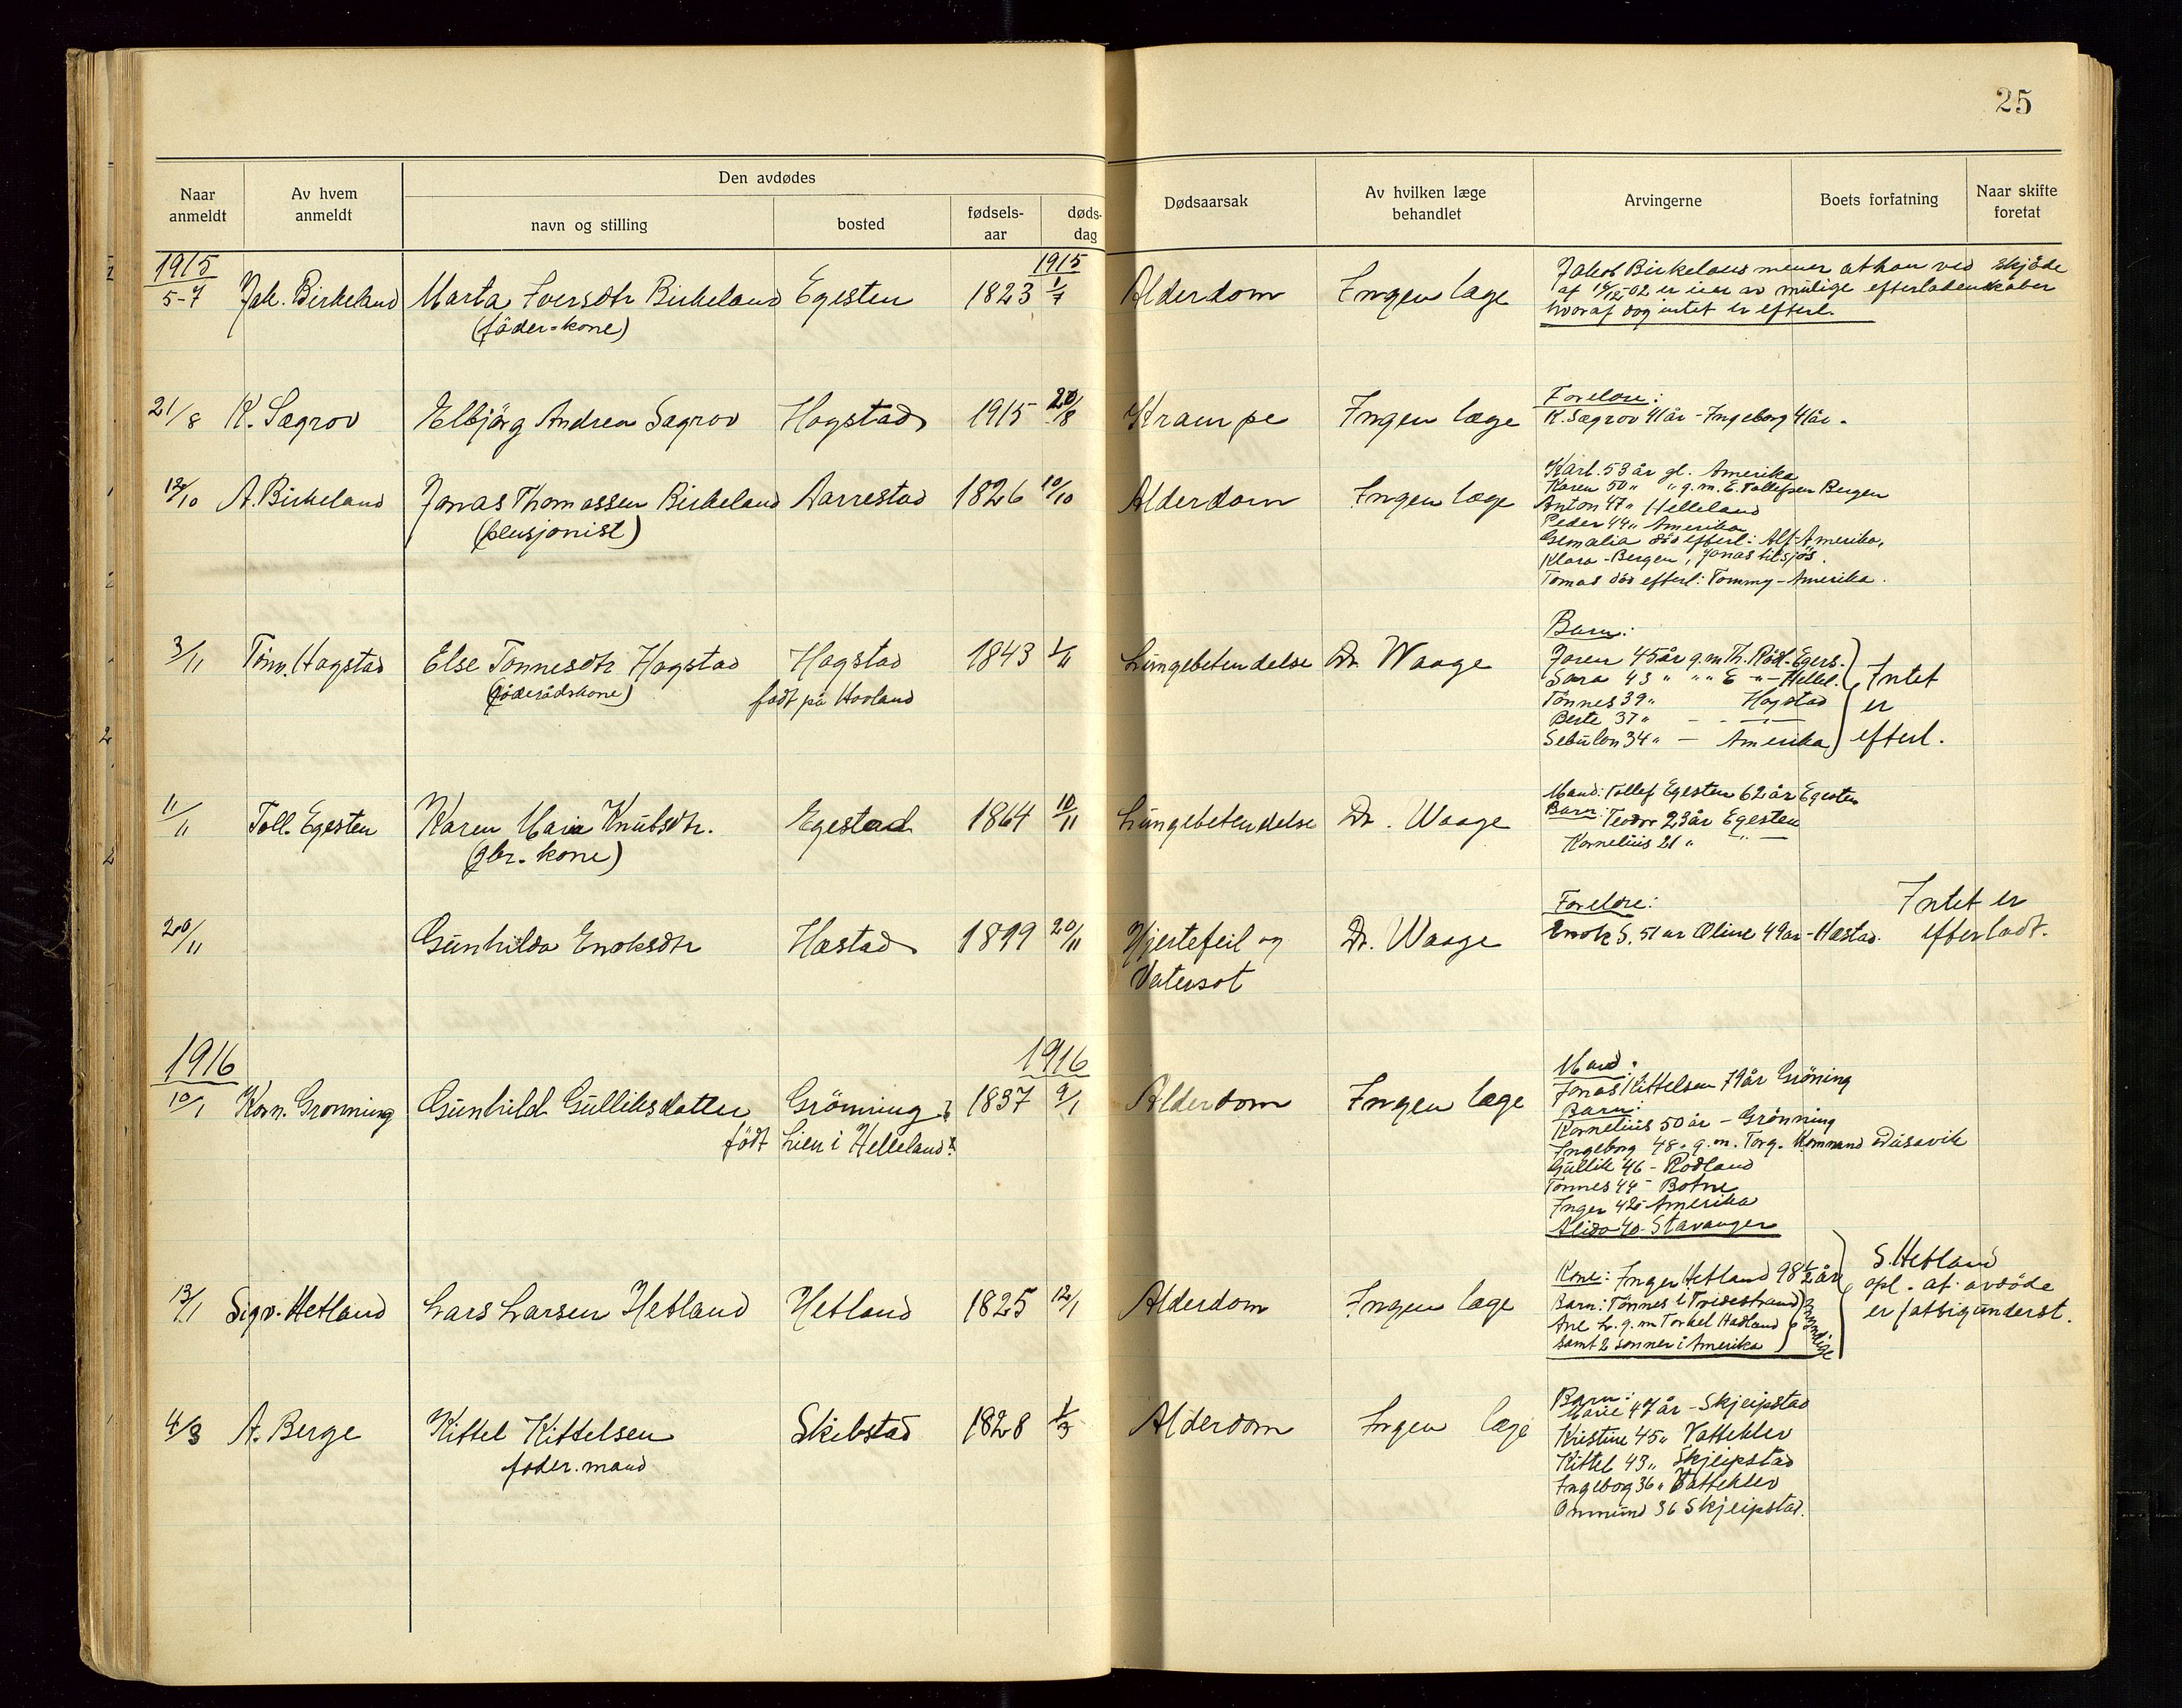 25
Naar anmeldt
Av hvem anmeldt
Den avdødes
navn og stilling
bosted
fødsels-aar
døds-dag
Dødsaarsak
Av hvilken læge behandlet
Arvingerne
Boets forfatning
Naar skifte foretat
1915
1915
5-7 Jak. Birkeland Marta Iversdtr Birkeland Egesten 1823 1/7 Alderdom Ingen læge
(föder-kone)
Jakob Birkeland mener at han ved skjöde
af 16/12-02 er eier av mulige efterladenskaber
hvoraf dog intet er efterl.
21/8 K. Sægrov Elbjörg Andrea Sægrov Hogstad 1915 20/8 Krampe Ingen læge
Foreldre:
K. Sægrov 41 år - Ingeborg 41 år.
12/10 A. Birkeland Jonas Thomassen Birkeland Aarrestad 1826 10/10 Alderdom Ingen læge
(pensjonist)
Karl. 53 år gl. Amerika
Karen 50 " " g.m. E. Tollefsen Bergen
Anton 47 " Helleland
Peder 44 " Amerika
död efterl: Alf-Amerika,
Klara-Bergen, Jonas tilsjös.
Tomas död efterl: Tommy-Amerika.
3/11 Tönn. Hogstad Else Tönnesdtr Hogstad Hogstad 1843 1/11 Lungebetendelse Dr. Waage
(föderådskone) födt på Hovland
Barn:
Joren 45 år g.m. Th. Röd-Egers.
Sara 43 " " " E " - Hellel.
Tönnes 39 " Hogstad
Berte 37 " - - " -
Sebulon 34 " - Amerika
Intet
er
efterl.
11/11 Toll. Egesten Karen Maria Knutsdtr. Egestad 1864 10/11 Lungebetendelse Dr. Waage
(gbr. kone)
Mand: Tollef Egesten 62 år Egesten
Barn: Teodor 23 år Egesten
Kornelius 21 " - " -
20/11 Gunhilda Enoksdtr Hæstad 1899 20/11 Hjertefeil og Dr. Waage
Vatersot
Foreldre:
Enok S. 51 år Oline 49 år - Hæstad.
Intet er
efterladt.
1916
1916
10/1 Korn. Grönning Gunhild Gulliksdatter Grönning 1837 9/1 Alderdom Ingen læge
födt Lien i Helleland?
Mand:
Jonas Kittelsen 79 år Gröning
Barn:
Kornelius 50 år - Grönning
Ingeborg 48. g.m. Torg. Kommend Dusavik
Gullik 46 - Rodland
Tönnes 44 - Botne
Inger 42 - Amerika
Alida 40 - Stavanger
13/1 Sigv. Hetland Lars Larsen Hetland Hetland 1825 12/1 Alderdom Ingen læge
Kone: Inger Hetland 98 1/2 år
Barn: Tönnes i Tvedestrand
Ane L. g.m. Torkel Hadland
samt 2 sönner i Amerika
myndige
S. Hetland
opl. at avdöde
er fattigunderst.
4/3 A. Berge Kittel Kittelsen Skibstad 1828 1/3 Alderdom Ingen læge
föder.mand
Barn:
Marie 47 år - Skjeipstad
Kristine 45 " Vatteklev
Kittel 43 " Skjeipstad
Ingeborg 36 " Vatteklev
Ommund 36 Skjeipstad.